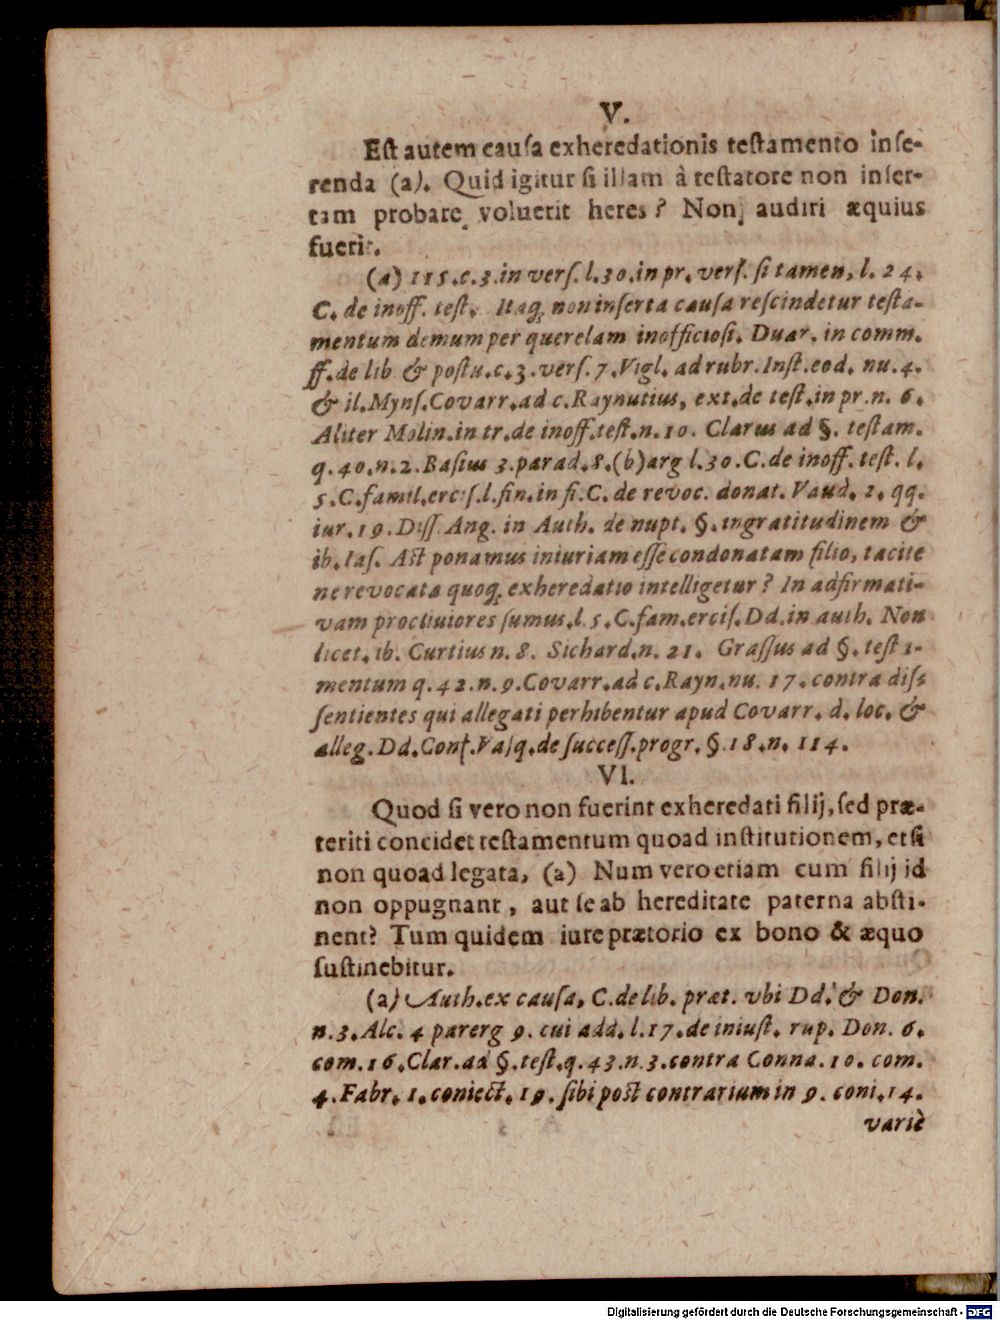 V.
Eſt autem cauſa exheredationis teſtamento inſe-
renda (a). Quid igitur ſi illam à teſtatore non inſer-
tam probare voluerit heres? Non audiri æquius
fuerit.
(a) 115.c.3.in verſ.l.30.in pr. verſ. ſi tamen, l. 24.
C. de inoff. teſt. Itaq; non inſerta cauſa reſcindetur teſta-
mentum demum per querelam inofficioſi. Duar. in comm.
ff. de lib & poſtu.c.3.verſ.7.Vigl. ad rubr.Inſt.eod. nu.4.
& il.Mynſ.Covarr.ad c.Raynutius, ext.de teſt.in pr.n. 6.
Aliter Molin.in tr.de inoff.teſt.n.10. Clarus ad §. teſtam.
q.40.n.2.Baſius 3.parad.8.(b)arg l.30.C.de inoff. teſt. l.
5.C.famil.erciſ.l.fin.in fi.C. de revoc. donat. Vaud. 2. qq.
iur.19.Diſſ.Ang. in Auth. de nupt. §.ingratitudinem &
ib.Iaſ. Aſt ponamus iniuriam eſſe condonatam filio, tacite
ne revocata quoq; exheredatio intelligetur? In adfirmati-
vam procliuiores ſumus.l.5.C.fam.erciſ.Dd.in auth. Non
licet. ib. Curtius n. 8. Sichard.n. 21. Graſſus ad §. teſta-
mentum q.42.n.9.Covarr.ad c.Rayn.nu. 17.contra diſs
ſentientes qui allegati perhibentur apud Covarr. d. loc. &
alleg.Dd.Conf.Vaſq.de ſucceſſ.progr. §.18.n. 114.
VI.
Quod ſi vero non fuerint exheredati filij, ſed præ-
teriti concidet teſtamentum quoad inſtitutionem, etſi
non quoad legata, (a) Num vero etiam cum filij id
non oppugnant, aut ſe ab hereditate paterna abſti-
nent? Tum quidem iure prætorio ex bono & æquo
ſuſtinebitur.
(a) Auth.ex cauſa, C.de lib. præt. vbi Dd. & Don.
n.3.Alc. 4 parerg 9. cui add. l.17.de iniuſt. rup. Don. 6.
com.16.Clar.ad §.teſt.q.43.n.3.contra Conna.10. com.
4.Fabr. 1.coniect. 19. ſibi poſt contrarium in 9. coni.14.
variè
Digitalisierung gefördert durch die Deutsche Forschungsgemeinschaft - DFG